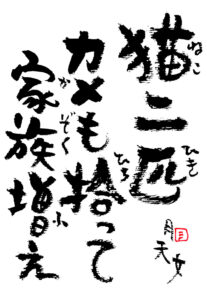 猫二匹
ねこ ひき
カメも拾って
ひろ
家族増え
かぞく ふ
月天女